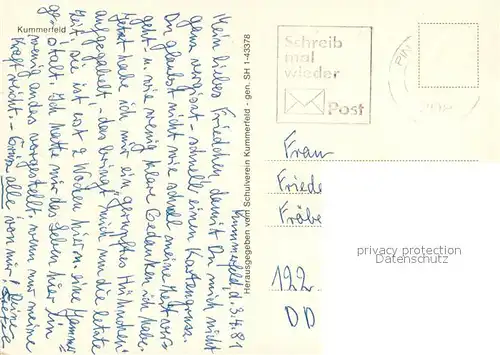 Kummerfeld
Kummerfeld, d. 3.4.81
Mein liebes Friedchen, damit Du mich nicht
ganz vergisst - schnell einen Kartengruss.
Du glaubst nicht wie schnell meine Zeit ver-
geht u. wie wenig klare Gedanken ich habe.
Jetzt habe ich mir ein gerupftes Hühnchen
aufgegabelt, das bringt mich um die letzte
Zeit, sie ist erst 2 Wochen hier. eine
Ich hatte mir das Leben hier ein
wenig anders vorgestellt, wenn nur meine
Kraft reicht. - Grüss alle von mir! Deine
Herausgegeben vom Schulverein Kummerfeld - gen. SH 1-43378
Schreib
mal
wieder
Post
PIN
Frau
Friede
Fröbe
122
DD
privacy protection
Datenschutz